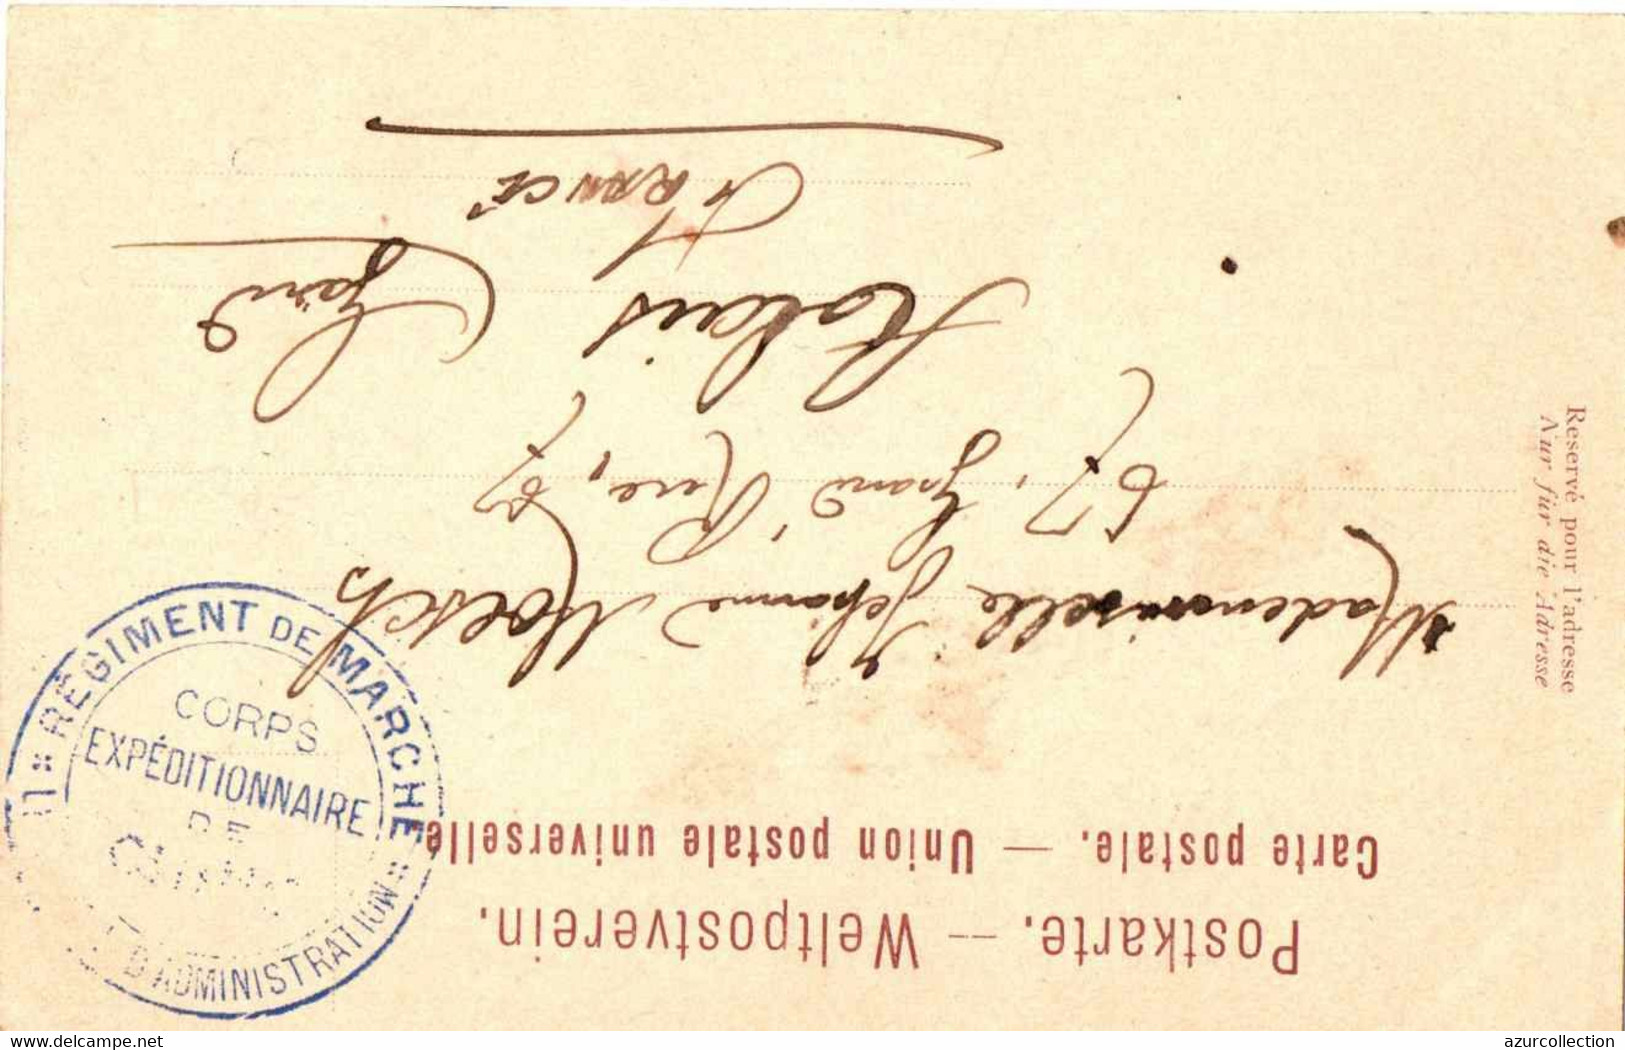 Postkarte. — Weltpostverein.
Carte postale. — Union postale universelle
Mademoiselle Jehanne Moesch
67, Grand'Rue, 67
Alais (Gard
FRANCE
Reservé pour l'adresse
Nur für die Adresse
RÉGIMENT DE MARCHE
CORPS
EXPÉDITIONNAIRE
DE
D'ADMINISTRATION
delcampe.net
azurcollection